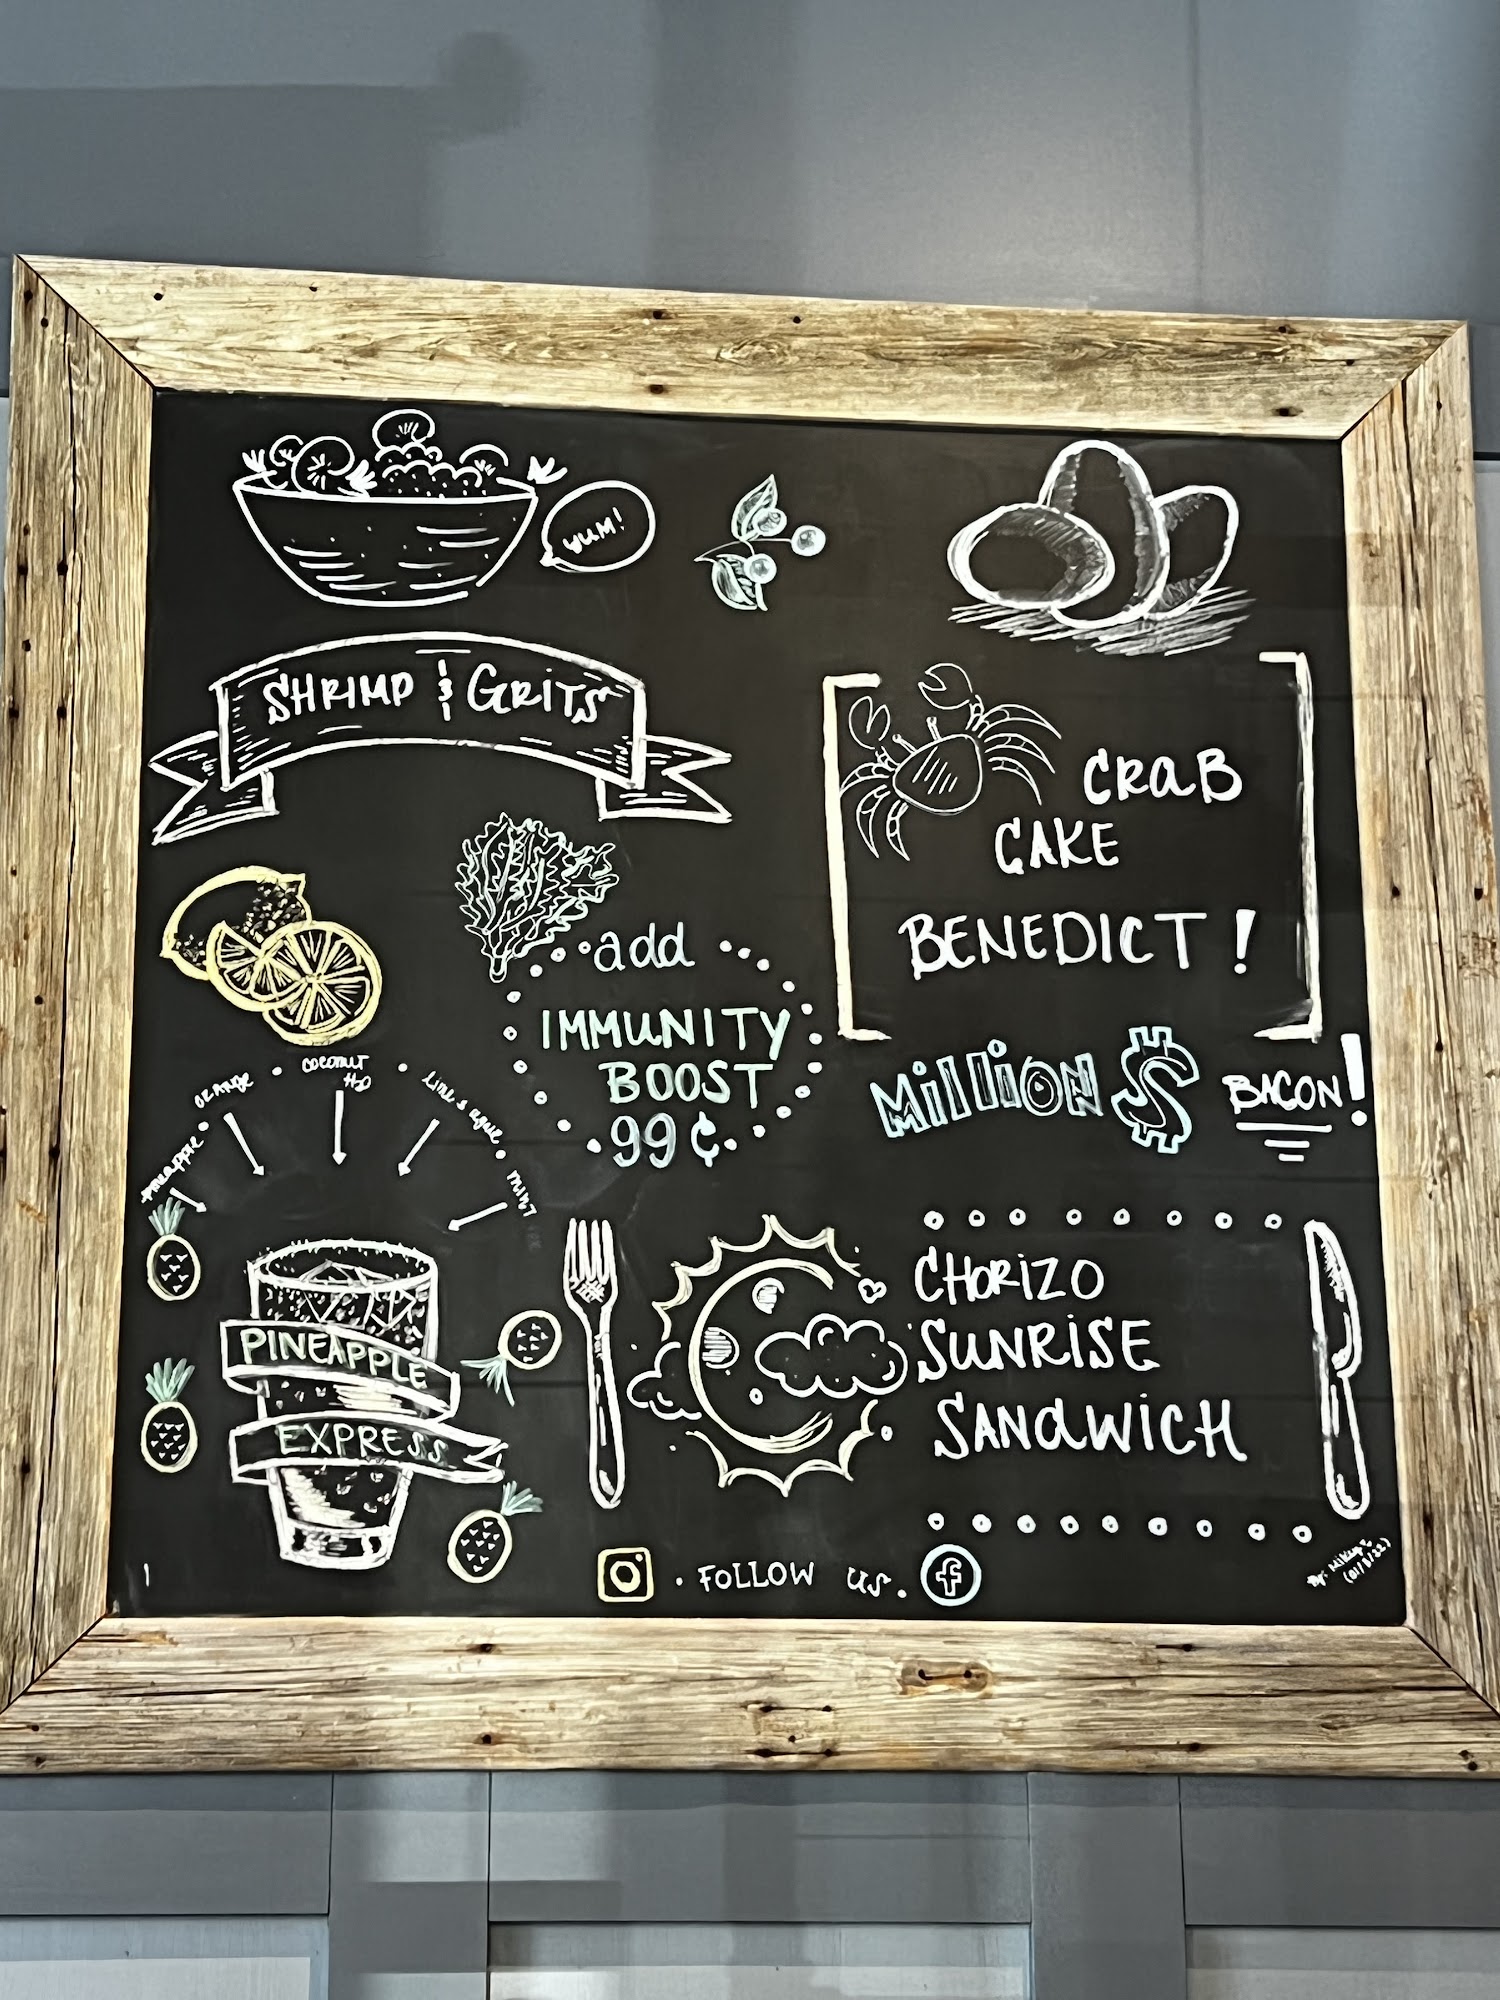 YUM!
SHRIMP & GRITS
CRaB
CAKE
BENEDICT!
add
IMMUNITY
BOOST
99¢
MilliON $ BACON!
PINEAPPLE
ORANGE
COCONUT
H2O
MINT
PINEAPPLE
EXPRESS
CHORIZO
SUNRISE
SANDWICH
FOLLOW US.